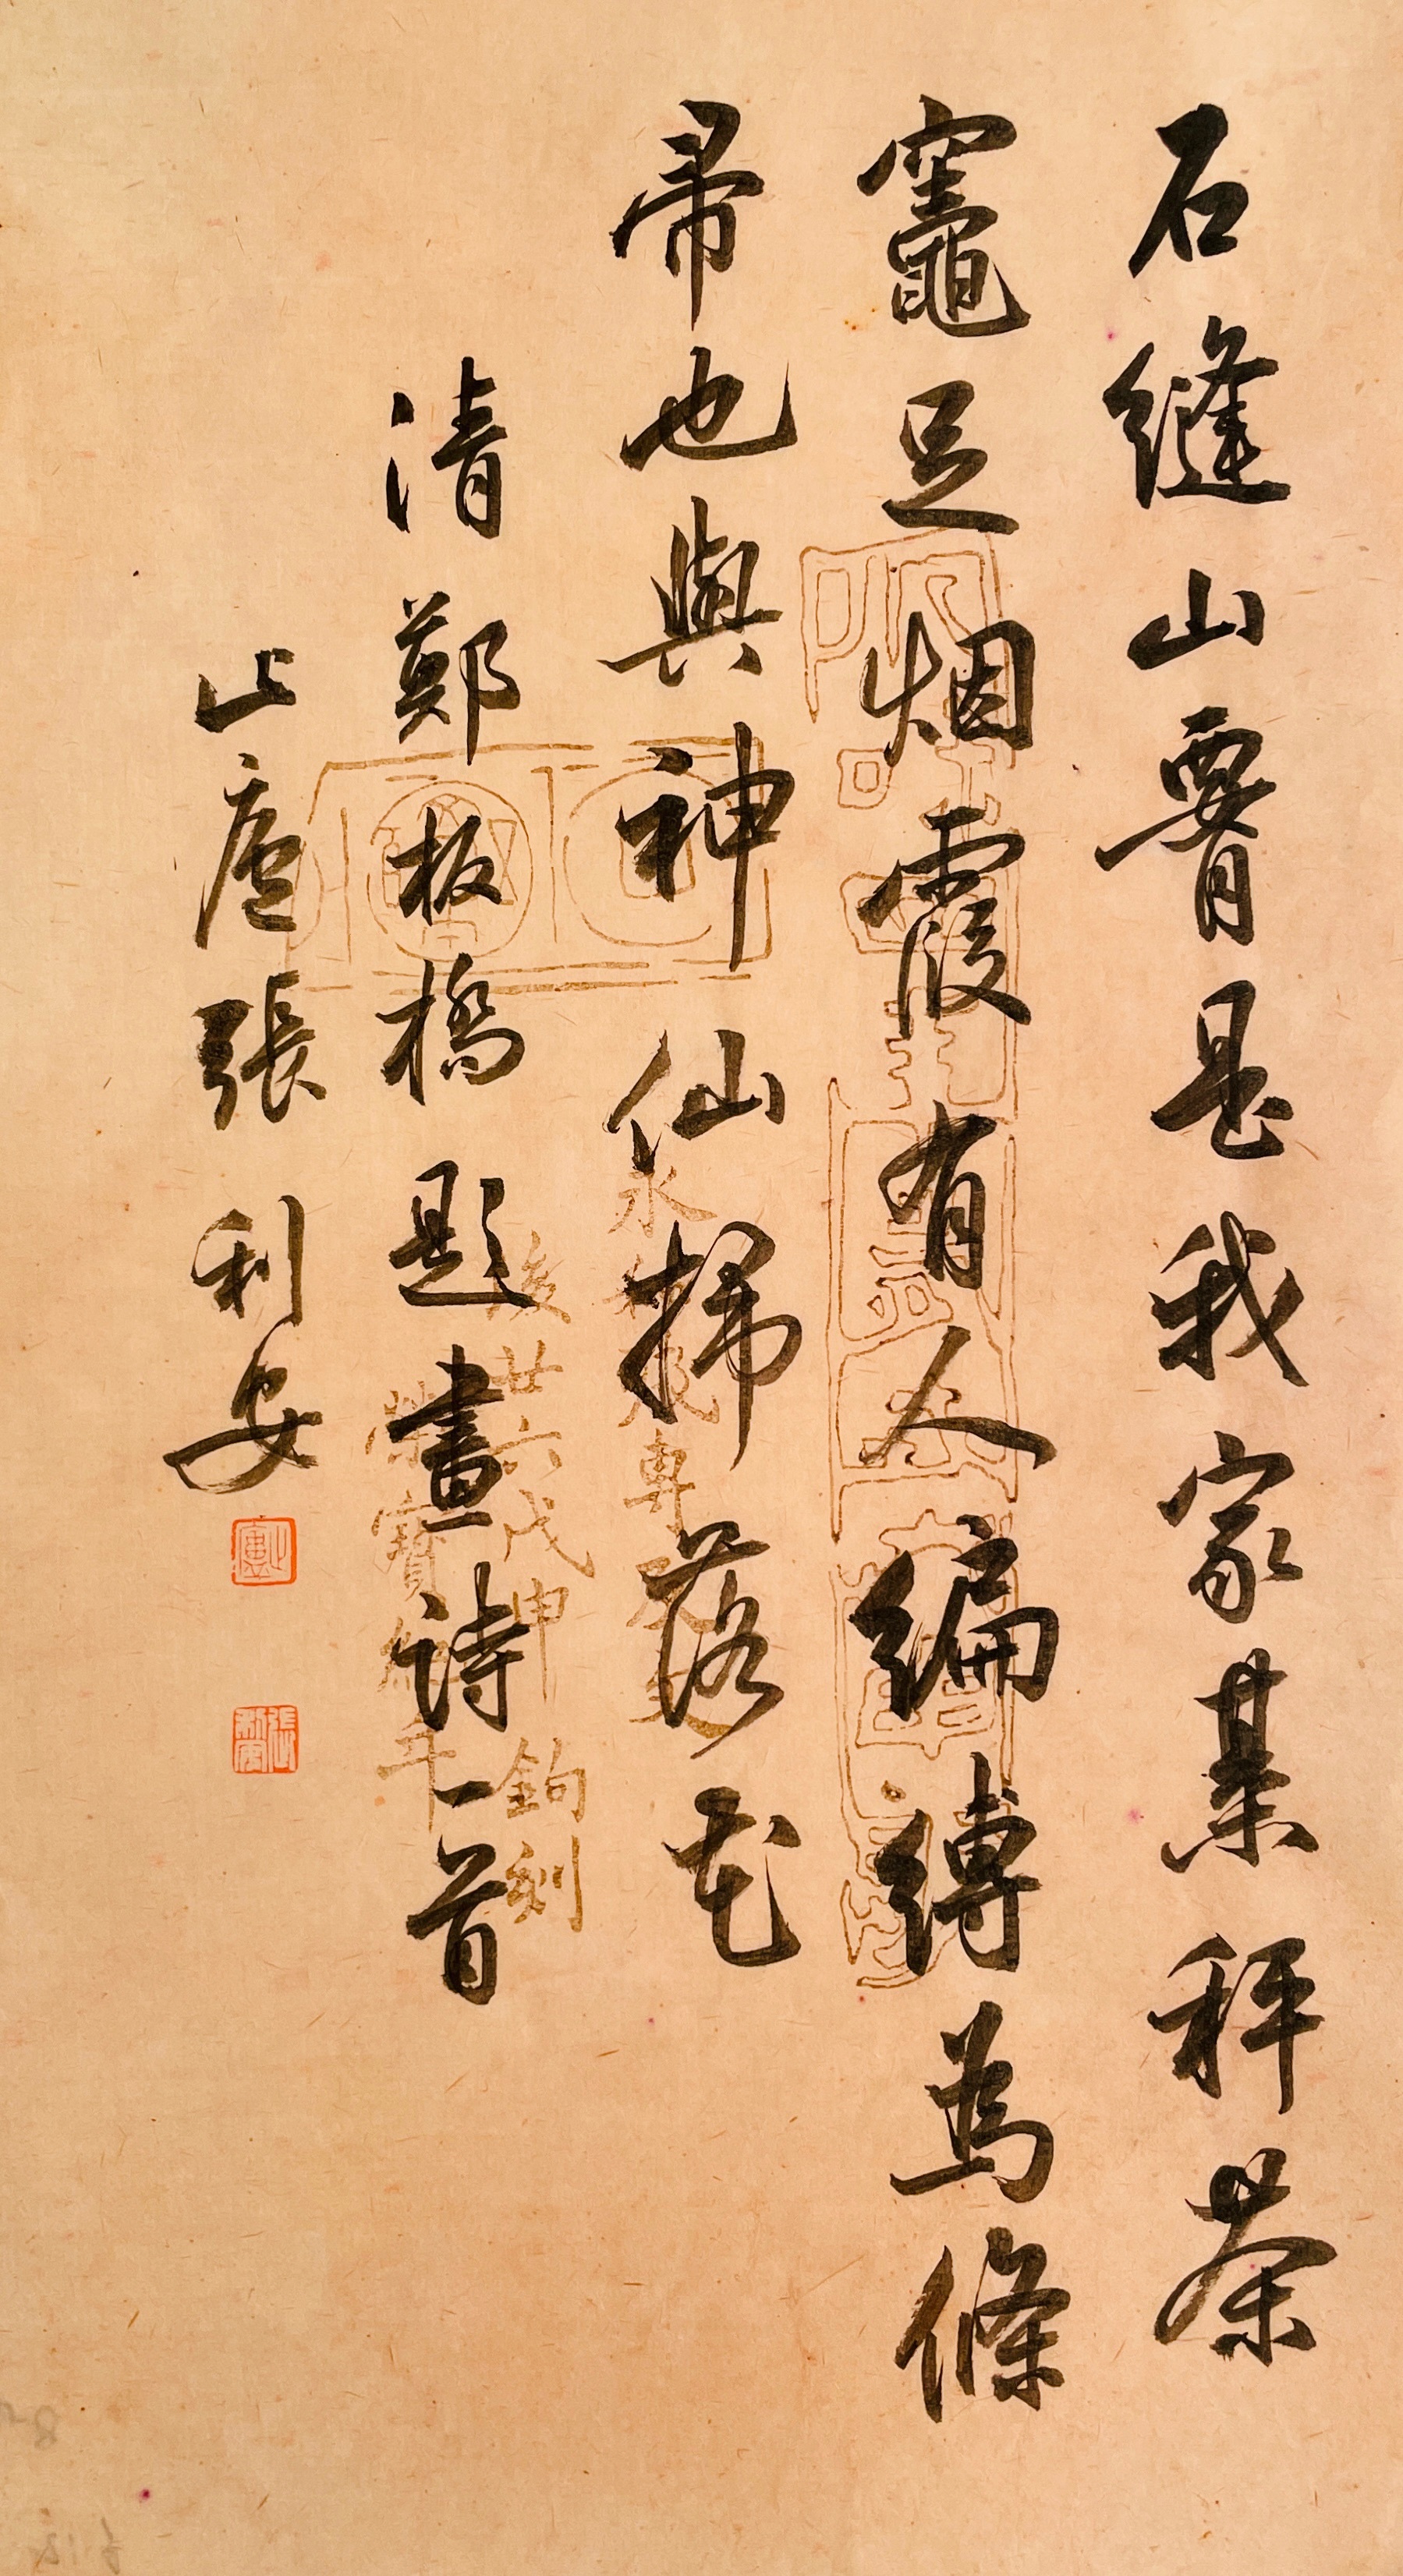 石縫山腰是我家棊秤茶
竈足烟霞有人編縛為條
帚也與神仙掃落花
清鄭板橋題畫詩一首
止廬張利安